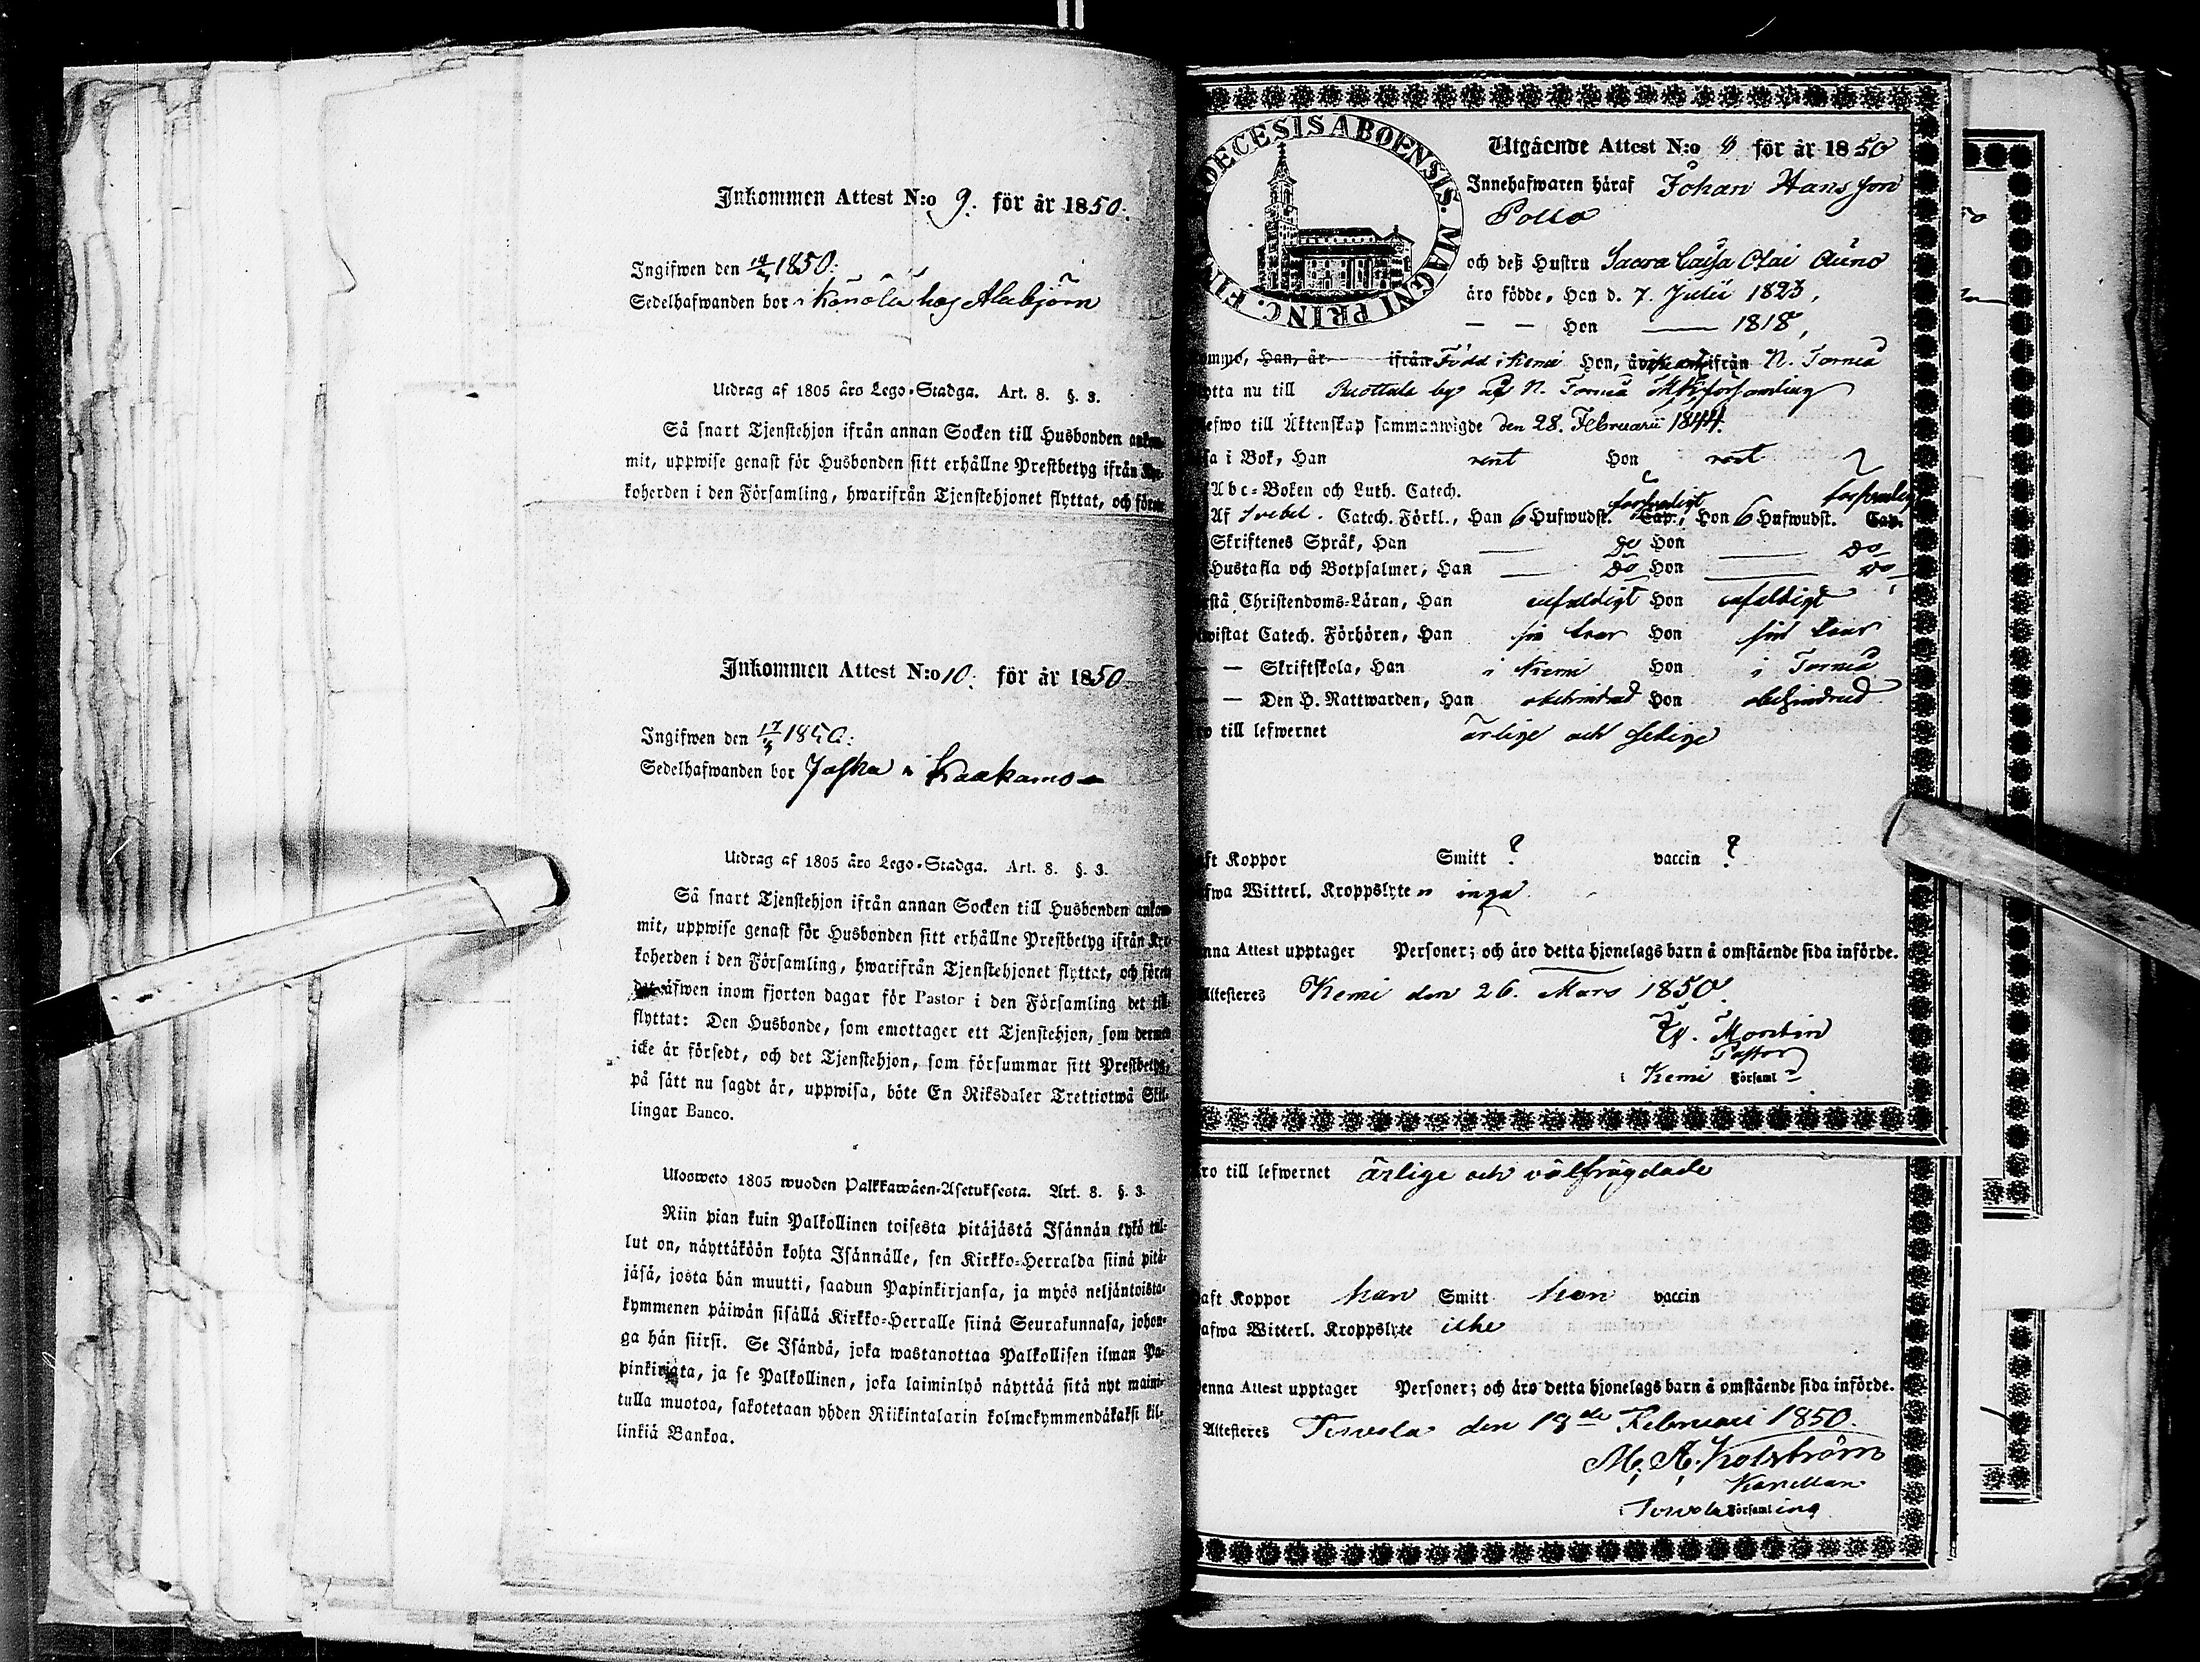 Inkommen Attest N:o 9. för år 1850.
Ingifwen den 14/4 1850.
Sedelhafwanden bor i Könölä hos Alabjörn
Utdrag af 1805 års Lego-Stadga. Art. 8. §. 3.
Så snart Tjenstehjon ifrån annan Socken till Husbonden ankom-
mit, uppwise genast för Husbonden sitt erhållne Prestbetyg ifrån Kyr-
koherden i den Församling, hwarifrån Tjenstehjonet flyttat, och förete
Inkommen Attest N:o 10. för år 1850
Ingifwen den 17/4 1850.
Sedelhafwanden bor Jaska i Kaakamo
Utdrag af 1805 års Lego-Stadga. Art. 8. §. 3.
Så snart Tjenstehjon ifrån annan Socken till Husbonden ankom-
mit, uppwise genast för Husbonden sitt erhållne Prestbetyg ifrån Kyr-
koherden i den Församling, hwarifrån Tjenstehjonet flyttat, och förete
det äfwen inom fjorton dagar för Pastor i den Församling det till-
flyttat: Den Husbonde, som emottager ett Tjenstehjon, som dermed
icke är försedt, och det Tjenstehjon, som försummar sitt Prestbetyg,
på sätt nu sagdt är, uppwisa, böte En Riksdaler Trettiotwå Skil-
lingar Banco.
Ulosweto 1805 wuoden Palkkawäen-Asetuksesta. Art. 8. §. 3.
Niin pian kuin Palkollinen toisesta pitäjästä Isännän tykö tul-
lut on, näyttäköön kohta Isännälle, sen Kirkko-Herralda siinä pitä-
jäsä, josta hän muutti, saadun Papinkirjansa, ja myös neljäntoista-
kymmenen päiwän sisällä Kirkko-Herralle siinä Seurakunnasa, johon-
ga hän siirsi. Se Isändä, joka wastanottaa Palkollisen ilman Pa-
pinkirjata, ja se Palkollinen, joka laiminlyö näyttää sitä nyt maini-
tulla muotoa, sakotetaan yhden Riikintalarin kolmekymmendäkaksi kil-
linkiä Bankoa.
DIOECESIS ABOENSIS. MAGNI PRINC. FIN
Utgående Attest N:o 8 för år 1850
Innehafwaren häraf Johan Hansson
Pollo
och deß Hustru Saara Caisa Olai Auno
äro födde, Han d. 7. Julii 1823,
— — Hon —— 1818,
ommo, Han, år ifrån Född i Kemi Hon, år ifrån N. Torneå
ytta nu till Ruottala by af N. Torneå församling
efwo till Äktenskap sammanwigde den 28. Februarii 1844.
sa i Bok, Han rent Hon rent
Abc-Boken och Luth. Catech.
Af Svebel. Catech. Förkl., Han 6 Hufwudst. Cap., Hon 6 Hufwudst. Cap.
Skriftenes Språk, Han —— Do Hon —— Do
Hustafla och Botpsalmer, Han —— Do Hon —— Do
rstå Christendoms-Läran, Han enfaldigt Hon enfaldigt
wistat Catech. Förhören, Han Hon
— — Skriftskola, Han i Kemi Hon i Torneå
— — Den H. Nattwarden, Han obehindrad Hon obehindrad
ro till lefwernet ärlige och sedige
ft Koppor Smitt ? vaccin ?
fwa Witterl. Kroppslyten inga
nna Attest upptager Personer; och äro detta hjonelags barn å omstående sida införde.
Attesteres Kemi den 26. Mars 1850.
Montin
Pastor
i Kemi Församl
ro till lefwernet ärlige och välfrägdade
aft Koppor han Smitt hon vaccin
afwa Witterl. Kroppslyte icke
enna Attest upptager Personer; och äro detta hjonelags barn å omstående sida införde.
Attesteres Terwola den 19de Februari 1850.
M. A. Kolström
Kapellan
i Terwola Församling